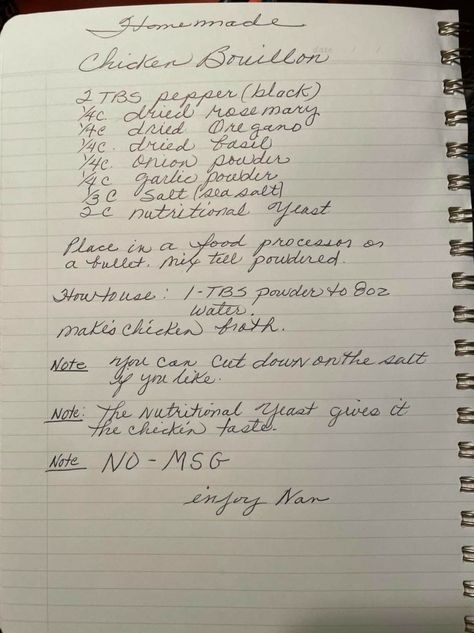 Homemade
Chicken Bouillon
date / /
2 TBS pepper (black)
1/4c. dried rosemary
1/4c dried oregano
1/4c. dried basil
1/4c. onion powder
1/4c garlic powder
1/3 C Salt (sea salt)
2 c nutritional yeast
Place in a food processor or
a bullet. Mix till powdered.
How to use: 1-TBS powder to 8oz
water.
makes chicken broth.
Note You can cut down on the salt
if you like.
Note: The Nutritional yeast gives it
the chicken taste.
Note NO-MSG
enjoy Nan